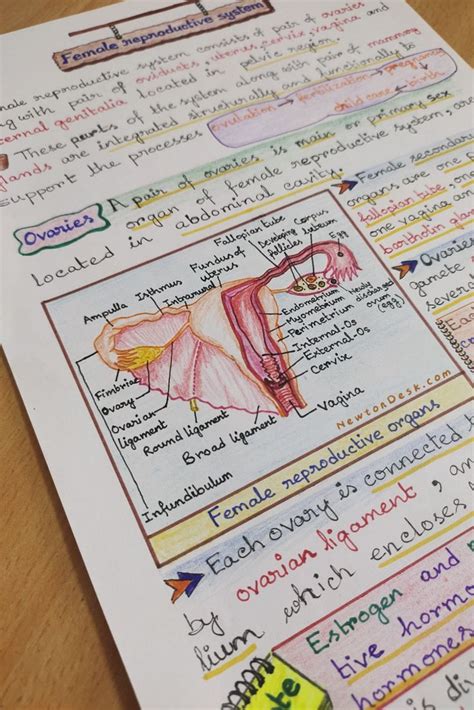 Female reproductive system
male reproductive system consists of pair of ovaries
g with pair of oviducts, uterus, cervix, vagina and
ternal genitalia located in pelvic region.
These parts of the system along with pair of mammary
glands are integrated structurally and functionally to
support the processes
ovulation → fertilization → pregnancy
child care ← birth
Ovaries
A pair of ovaries is main or primary sex
organ of female reproductive system, and
located in abdominal cavity.
Female secondary
organs are one
fallopian tube
one vagina and
bartholin glan
Ovaries
gamete
several
Each
Fallopian tube
Fundus of uterus
Isthmus
Ampulla
Intramural
Developing follicles
Corpus luteum
Egg
Endometrium
Myometrium
Perimetrium
Newly discharged ovum (egg)
Internal-Os
External-Os
Cervix
Vagina
Fimbriae
Ovary
Ovarian ligament
Round ligament
Broad ligament
Infundibulum
NewtonDesk.com
Female reproductive organs
Each ovary is connected t
by ovarian ligament, an
lium which encloses
Estrogen and
tive hormon
hormones
is di
te